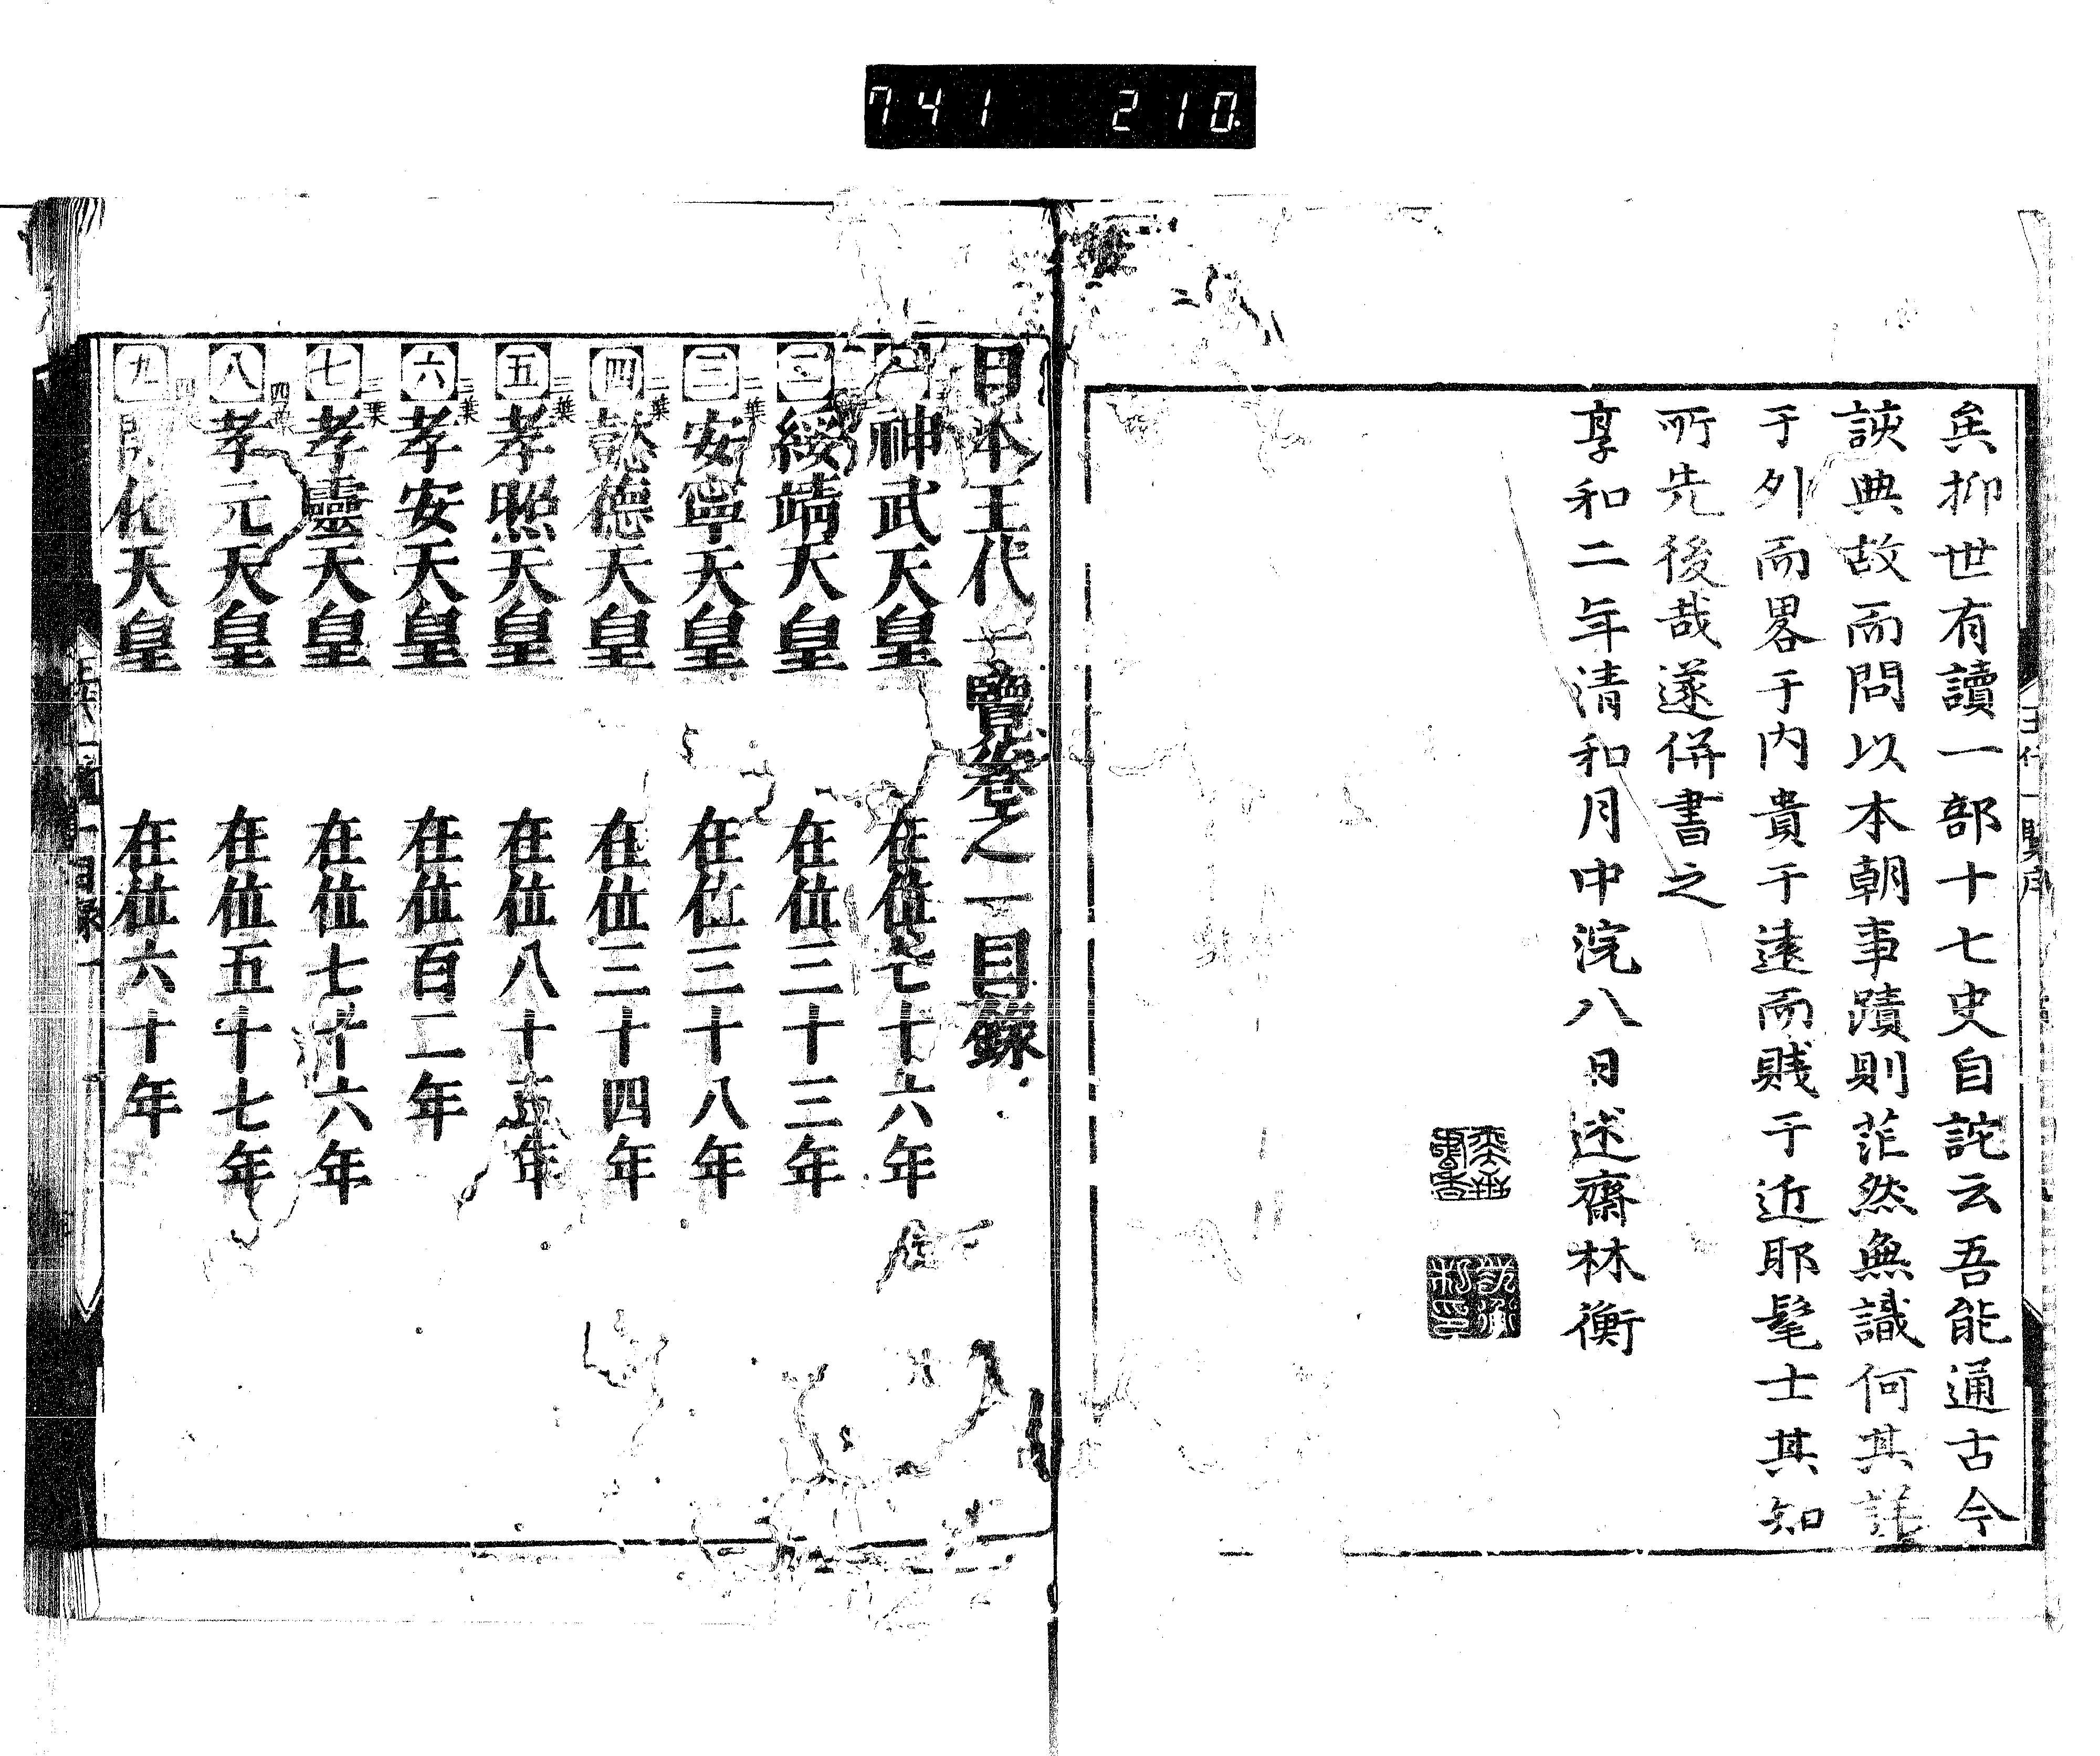 741 210.
矣抑世有讀一部十七史自詫云吾能通古今
談典故而問以本朝事蹟則茫然無識何其詳
于外而畧于内貴于遠而賎于近耶髦士其知
所先後哉遂併書之
享和二年清和月中浣八日述齋林衡
日本王代一覽卷之一目錄
一 神武天皇 在位七十六年
二 綏靖天皇 在位三十三年
三 二葉 安寧天皇 在位三十八年
四 二葉 懿德天皇 在位三十四年
五 三葉 孝照天皇 在位八十五年
六 三葉 孝安天皇 在位百二年
七 三葉 孝靈天皇 在位七十六年
八 四葉 孝元天皇 在位五十七年
九 開化天皇 在位六十年